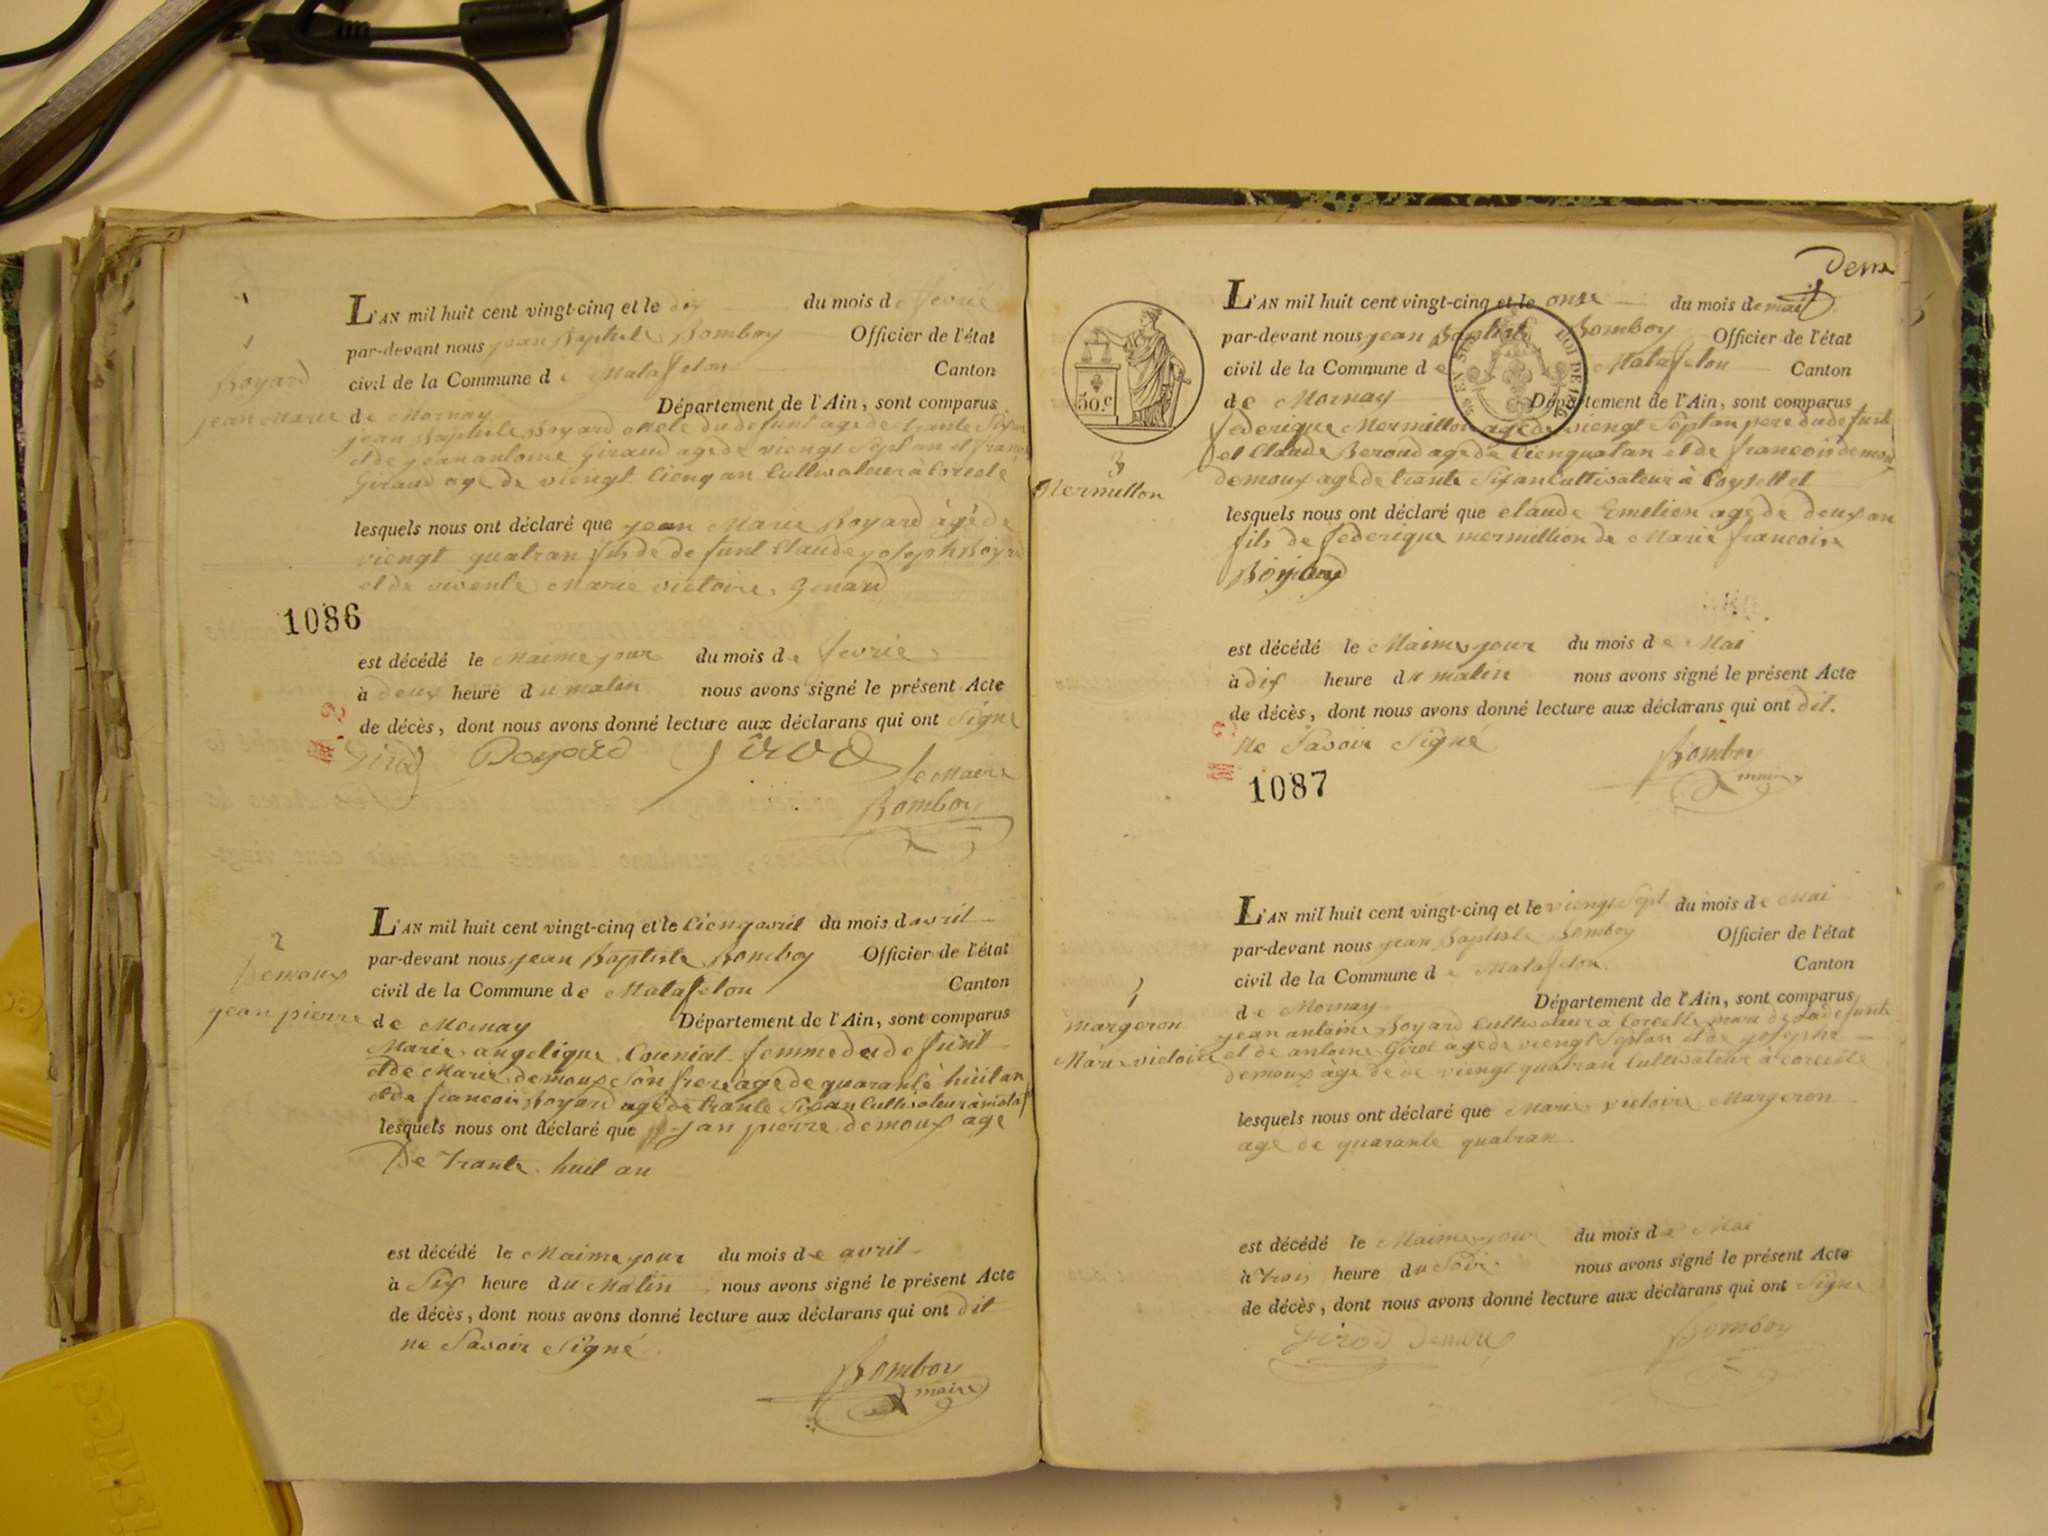 1
Boyard
jean Marie
L'AN mil huit cent vingt-cinq et le dix du mois de fevrié
par-devant nous jean Baptiste Bomboy Officier de l'état
civil de la Commune de Matafelon Canton
de Mornay Département de l'Ain, sont comparus
jean Baptiste Boyard oncle du defunt age de trante Six an
et de jean antoine Giraud age de viengt Sept an et françois
Giraud age de viengt Cienq an Cultivateur à Corcelé
lesquels nous ont déclaré que jean Marie Boyard âgé de
viengt quatran fils de defunt Claude yoseph Boyard
et de vivente Marie victoire
1086
est décédé le Maime jour du mois de fevrie
à deux heure du matin nous avons signé le présent Acte
de décès, dont nous avons donné lecture aux déclarans qui ont Signe
Girod Boyard Girod
le Maire
Bomboy
2
Demoux
jean pierre
L'AN mil huit cent vingt-cinq et le Cienq avril du mois d avril
par-devant nous jean Baptiste Bomboy Officier de l'état
civil de la Commune de Matafelon Canton
de Mornay Département de l'Ain, sont comparus
Marie angelique Couniat femme du defunt
et de Marie demoux Son frere àge de quarante huit an
et de francois Boyard age de trante Six an Cultivateur à mataf
lesquels nous ont déclaré que jan pierre demoux age
De trante huit an
est décédé le Maime jour du mois de avril
à Six heure du Matin nous avons signé le présent Acte
de décès, dont nous avons donné lecture aux déclarans qui ont dit
ne Savoir Signé
Bomboy
maire
Deux
50.c
3
Mermillon
L'AN mil huit cent vingt-cinq et le onze du mois de mai
par-devant nous jean Baptiste Bomboy Officier de l'état
civil de la Commune de Matafelon Canton
de Mornay Département de l'Ain, sont comparus
federique Mermillon age de viengt Septan pere du defunt
et Claude Beroud age de Cienquatan et de francois demoux
demoux age de trante Six an Cultivateur à Coysellet
lesquels nous ont déclaré que claude Emelien age de deux an
fils de federique mermillion de Marie francoise
Boyard
est décédé le Maime jour du mois de Mai
à dix heure du matin nous avons signé le présent Acte
de décès, dont nous avons donné lecture aux déclarans qui ont dit.
ne Savoir Signé
Bomboy
maire
1087
4
Margeron
Marie victoire
L'AN mil huit cent vingt-cinq et le viengt Sept du mois de Mai
par-devant nous jean Baptiste Bomboy Officier de l'état
civil de la Commune de Matafelon Canton
de Mornay Département de l'Ain, sont comparus
jean antoine Boyard Cultivateur à Corcelle mari de la defunte
et de antoine Girod àge de viengt Septan et de yosephe
demoux àge de de viengt quatran Cultivateur à corcelle
lesquels nous ont déclaré que Marie victoire Margeron
age de quarante quatran
est décédé le Maime jour du mois de Mai
à trois heure du Soir nous avons signé le présent Acte
de décès, dont nous avons donné lecture aux déclarans qui ont Signe
Girod Demoux
Bomboy